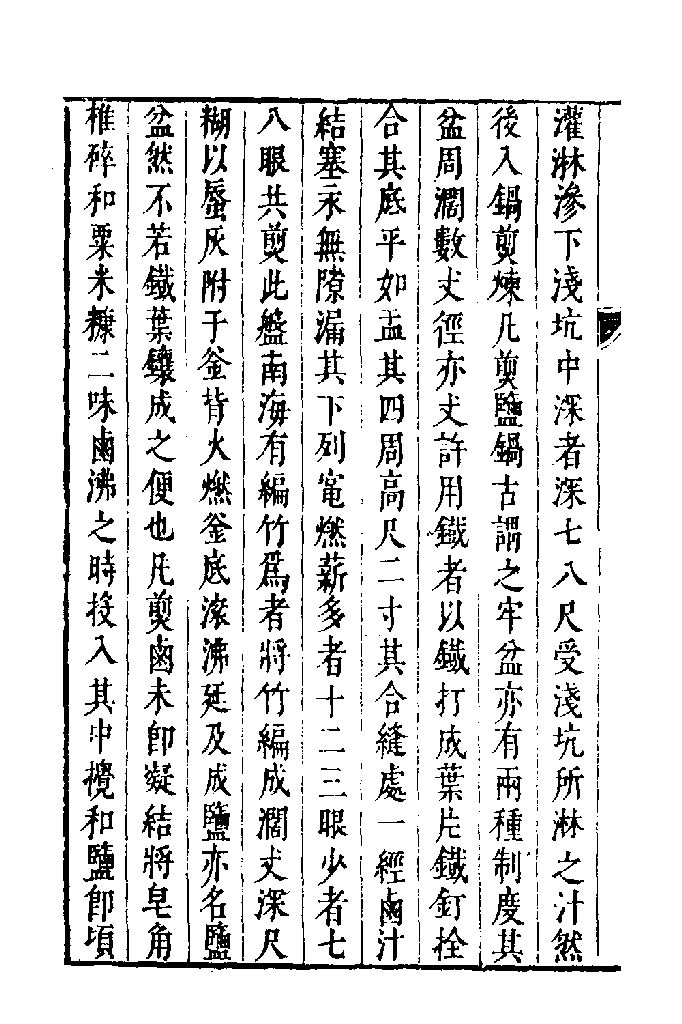 灌淋滲下淺坑中深者深七八尺受淺坑所淋之汁然
後入鍋煎煉凡煎鹽鍋古謂之牢盆亦有兩種制度其
盆周濶數丈徑亦丈許用鐵者以鐵打成葉片鐵釘拴
合其底平如盂其四周高尺二寸其合縫處一經鹵汁
結塞永無隙漏其下列竃燃薪多者十二三眼少者七
八眼共煎此盤南海有編竹爲者將竹編成濶丈深尺
糊以蜃灰附于釜背火燃釜底滚沸延及成鹽亦名鹽
盆然不若鐵葉鑲成之便也凡煎鹵未卽凝結將皂角
椎碎和粟米糠二味鹵沸之時投入其中攪和鹽卽頃